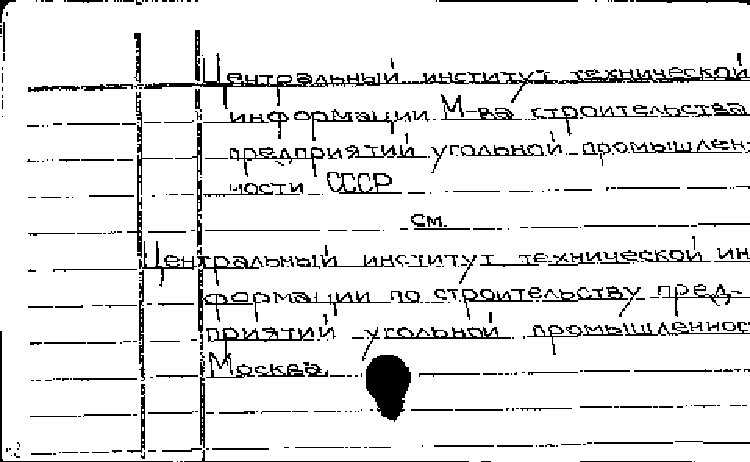 Центральный институт технической
информации М-ва строительства
предприятий угольной промышлен-
ности СССР
см.
Центральный институт технической ин
формации по строительству пред-
приятий угольной промышленнос
Москва.